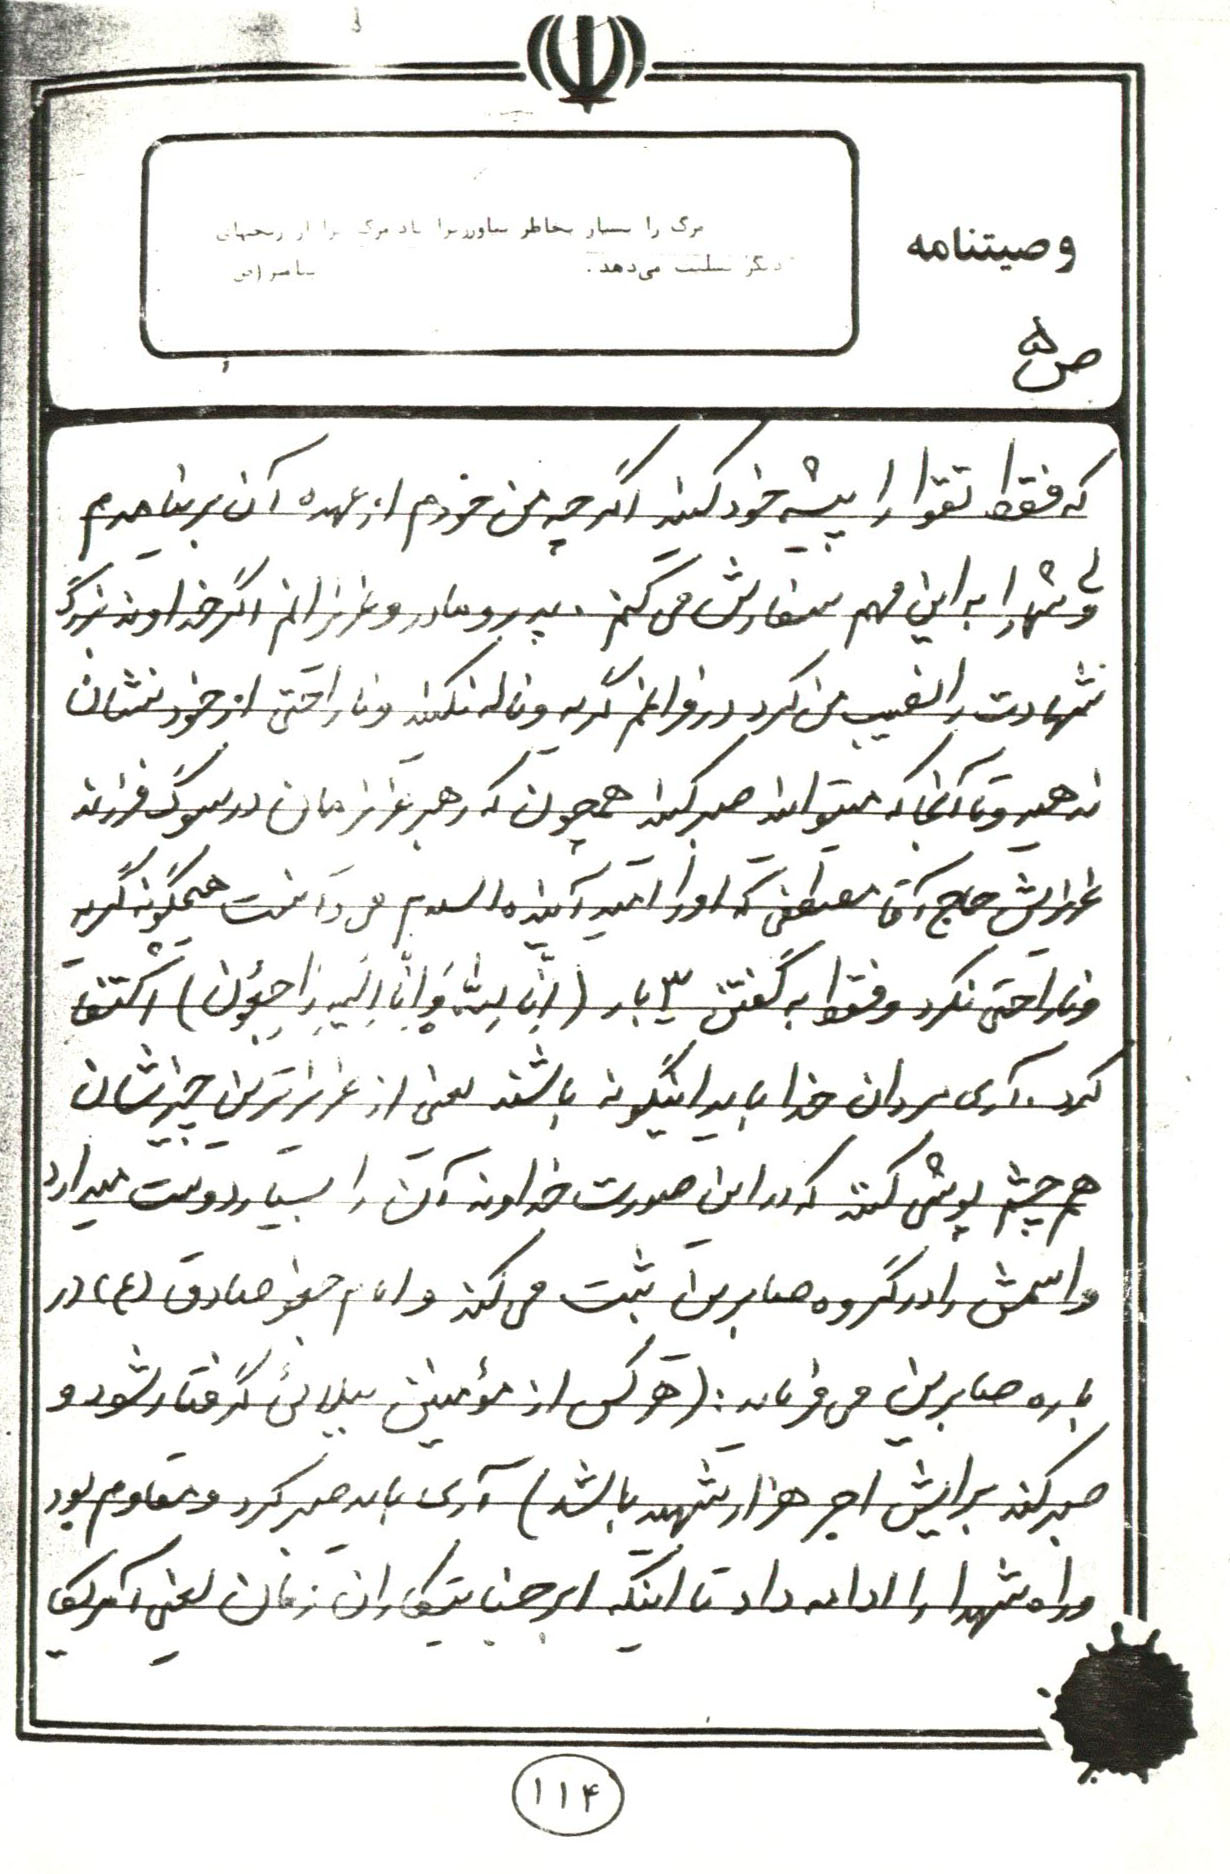 وصیتنامه
مرگ را بسیار بخاطر بیاورید زیرا یاد مرگ شما را از رنجهای
دیگر تسلیت می‌دهد.
پیامبر (ص)
ص ۵
که فقط تقوا را پیشه خود کنید اگر چه من خودم از عهده آن بر نیامدم
ولی شما را به این مهم سفارش می کنم . پدر و مادر و عزیزانم اگر خداوند بزرگ
شهادت را نصیب من کرد در فراقم گریه و ناله نکنید و ناراحتی از خود نشان
ندهید و تا آنجا که میتوانید صبر کنید همچون که رهبر عزیزمان در سوگ فرزند
عزیزش حاج آقا مصطفی که او را امید آینده اسلام می دانست هیچگونه گریه
و ناراحتی نکرد و فقط به گفتن ۳ بار (اِنّا لِلّه وَ اِنّا اِلَیهِ رَاجِعُون) اکتفا
کرد. آری مردان خدا باید اینگونه باشند یعنی از عزیزترین چیزشان
هم چشم پوشی کنند که در این صورت خداوند آنان را بسیار دوست میدارد
و اسمش را در گروه صابرین ثبت می کند و امام جعفر صادق (ع) در
باره صابرین می فرماید : (هر کس از مؤمنین ببلائی گرفتار شود و
صبر کند برایش اجر هزار شهید باشد) آری باید صبر کرد و مقاوم بود
و راه شهدا را ادامه داد تا اینکه ابرجنایتکاران زمان یعنی آمریکا
۱۱۴